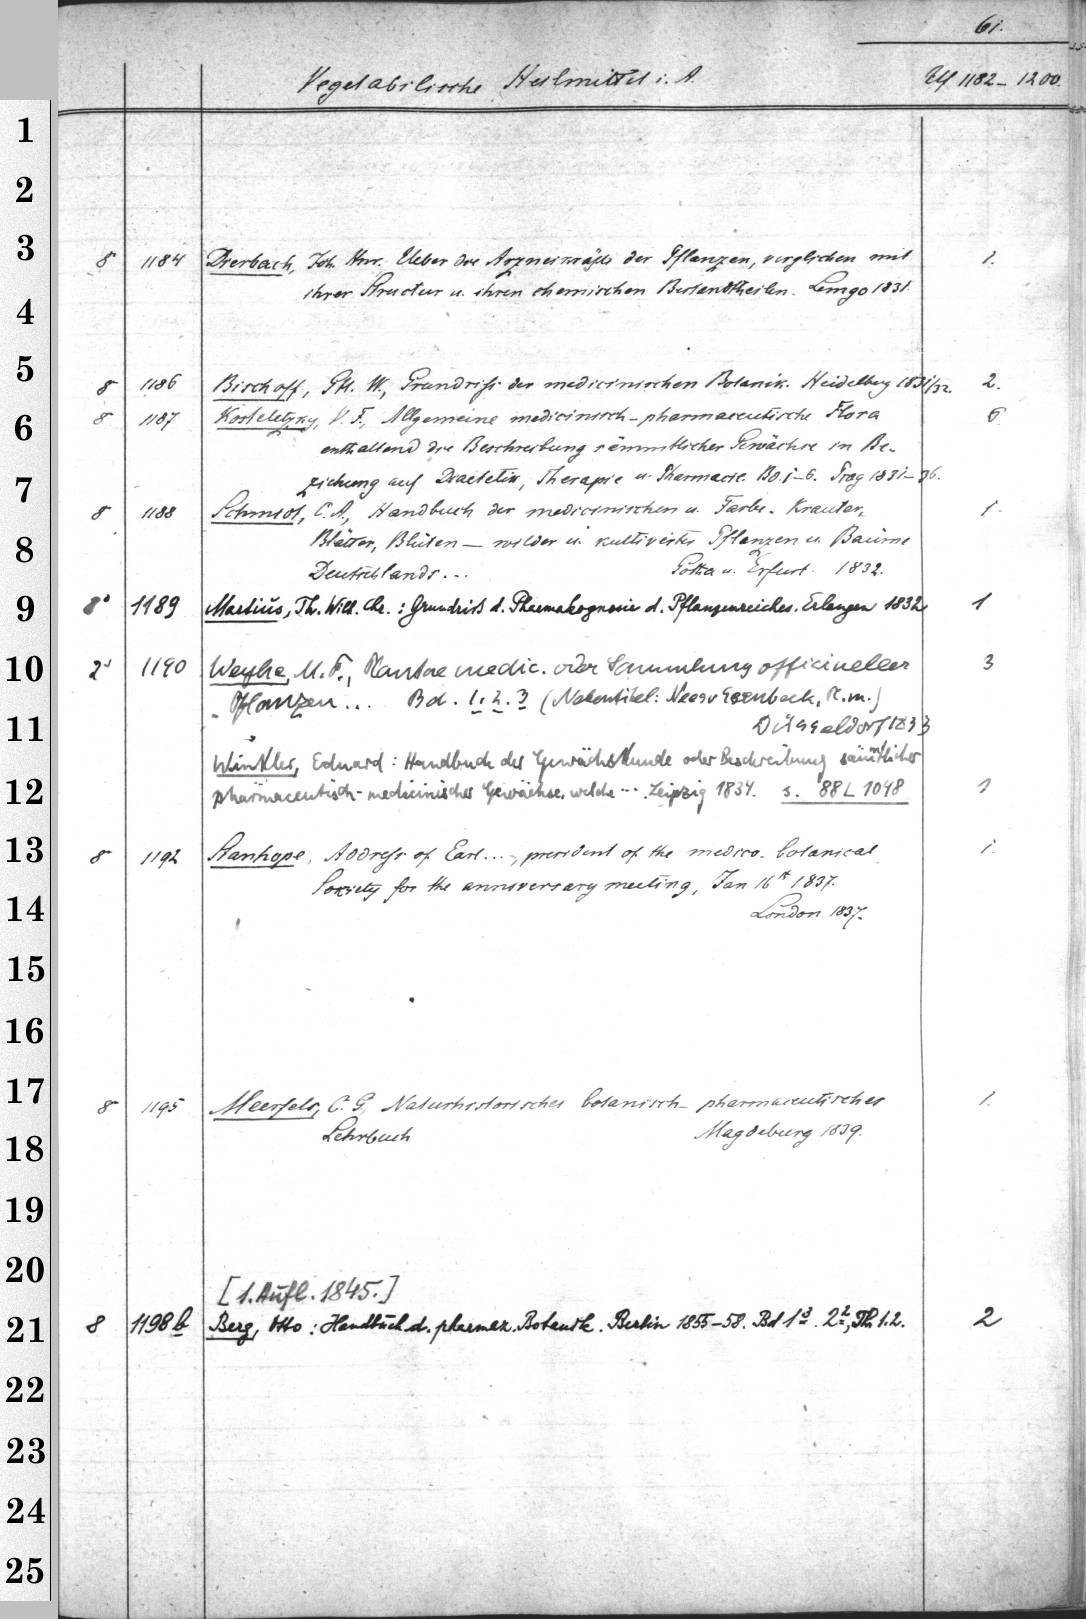 61.
Vegetabilische Heilmittel i. A. 1182 – 1200.
1
2
3 8 1184 Dierbach, Joh. Hnr. Ueber die Arzneikräfte der Pflanzen, verglichen mit 1.
ihrer Structur u. ihren chemischen Bestandtheilen. Lemgo 1831.
4
5 8 1186 Bischoff, Gtl. W., Grundriss der medicinischen Botanik. Heidelberg 1831/32. 2.
6 8 1187 Kosteletzky, V. F., Allgemeine medicinisch-pharmaceutische Flora 6
enthaltend die Beschreibung sämmtlicher Gewächse in Be-
7 ziehung auf Diaetetik, Therapie u. Pharmacie. Bd. 1–6. Prag 1831–36.
8 1188 Schmidt, C. A., Handbuch der medicinischen u. Farbe-Kräuter, 1.
8 Blätter, Blüten — wilder u. kultivirter Pflanzen u. Bäume
Deutschlands... Gotha u. Erfurt 1832.
9 8° 1189 Martius, Th. Wilh. Chr.: Grundriß d. Pharmakognosie d. Pflanzenreiches. Erlangen 1832 1
10 2° 1190 Weyhe, M. F., Plantae medic. oder Sammlung officineller 3
Pflanzen... Bd. 1. 2. 3 (Nebentitel: Nees v Esenbeck, Pl. m.)
11 Düsseldorf 1833
Winkler, Eduard: Handbuch der Gewächskunde oder Beschreibung sämtlicher
12 pharmaceutisch-medicinischer Gewächse, welche ... Leipzig 1834. s. 88 L 1048 1
13 8 1192 Stanhope, Address of Earl..., president of the medico-botanical 1.
Society for the anniversary meeting, Jan 16th 1837.
14 London 1837.
15
16
17 8 1195 Meerfels, C. G., Naturhistorisches botanisch-pharmaceutisches 1.
18 Lehrbuch Magdeburg 1839.
19
20 [1. Aufl. 1845.]
21 8 1198 b Berg, Otto: Handbuch d. pharmaz. Botanik. Berlin 1855–58. Bd 1³. 2², Th. 1. 2. 2
22
23
24
25